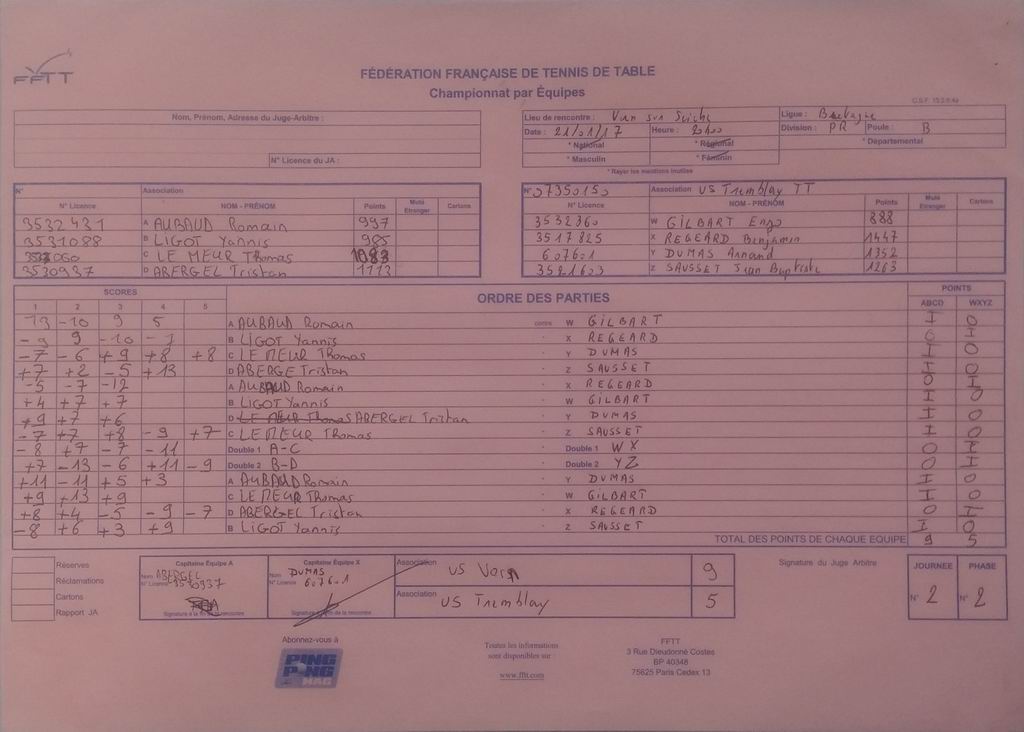 FFTT
FÉDÉRATION FRANÇAISE DE TENNIS DE TABLE
Championnat par Équipes
C.S.F.
Nom, Prénom, Adresse du Juge-Arbitre :
N° Licence du JA :
Lieu de rencontre : Vern sur Seiche Ligue : Bretagne
Date : 21/01/17 Heure : 20h00 Division : PR Poule : B
* National * Régional * Départemental
* Masculin * Féminin
* Rayer les mentions inutiles
N° Association
N° Licence NOM - PRÉNOM Points Muté Etranger Cartons
3532431 A AUBAUD Romain 997
3531088 B LIGOT Yannis 985
C LE MEUR Thomas 1083
3530937 D ABERGEL Tristan 1113
N° 07350150 Association US Tremblay TT
N° Licence NOM - PRÉNOM Points Muté Etranger Cartons
3532360 W GILBART Enzo 888
3517825 X REGEARD Benjamin 1447
607601 Y DUMAS Arnaud 1352
3521603 Z SAUSSET Jean Baptiste 1263
SCORES ORDRE DES PARTIES POINTS
1 2 3 4 5 ABCD WXYZ
13 -10 9 5 A AUBAUD Romain contre W GILBART I 0
-9 9 -10 -7 B LIGOT Yannis X REGEARD 0 I
-7 -6 +9 +8 +8 C LE MEUR Thomas Y DUMAS I 0
+7 +2 -5 +13 D ABERGE Tristan Z SAUSSET I 0
-5 -7 -12 A AUBAUD Romain X REGEARD 0 I
+4 +7 +7 B LIGOT Yannis W GILBART I 0
+9 +7 +6 D LE MEUR Thomas ABERGEL Tristan Y DUMAS I 0
-7 +7 +8 -9 +7 C LE MEUR Thomas Z SAUSSET I 0
-8 +7 -7 -11 Double 1 A-C Double 1 WX 0 I
+7 -13 -6 +11 -9 Double 2 B-D Double 2 YZ 0 I
+11 -11 +5 +3 A AUBAUD Romain Y DUMAS I 0
+9 +13 +9 C LE MEUR Thomas W GILBART I 0
+8 +4 -5 -9 -7 D ABERGEL Tristan X REGEARD 0 I
-8 +6 +3 +9 B LIGOT Yannis Z SAUSSET I 0
TOTAL DES POINTS DE CHAQUE EQUIPE 9 5
Réserves
Réclamations
Cartons
Rapport JA
Capitaine Équipe A
Nom ABERGEL
N° Licence 3530937
Signature à la fin de la rencontre
Capitaine Équipe X
Nom DUMAS
N° Licence 607601
Signature à la fin de la rencontre
Association US Vern 9
Association US Tremblay 5
Signature du Juge Arbitre
JOURNEE PHASE
N° 2 N° 2
Abonnez-vous à
PING PONG MAG
Toutes les informations
sont disponibles sur :
www.fftt.com
FFTT
3 Rue Dieudonné Costes
BP 40348
75625 Paris Cedex 13